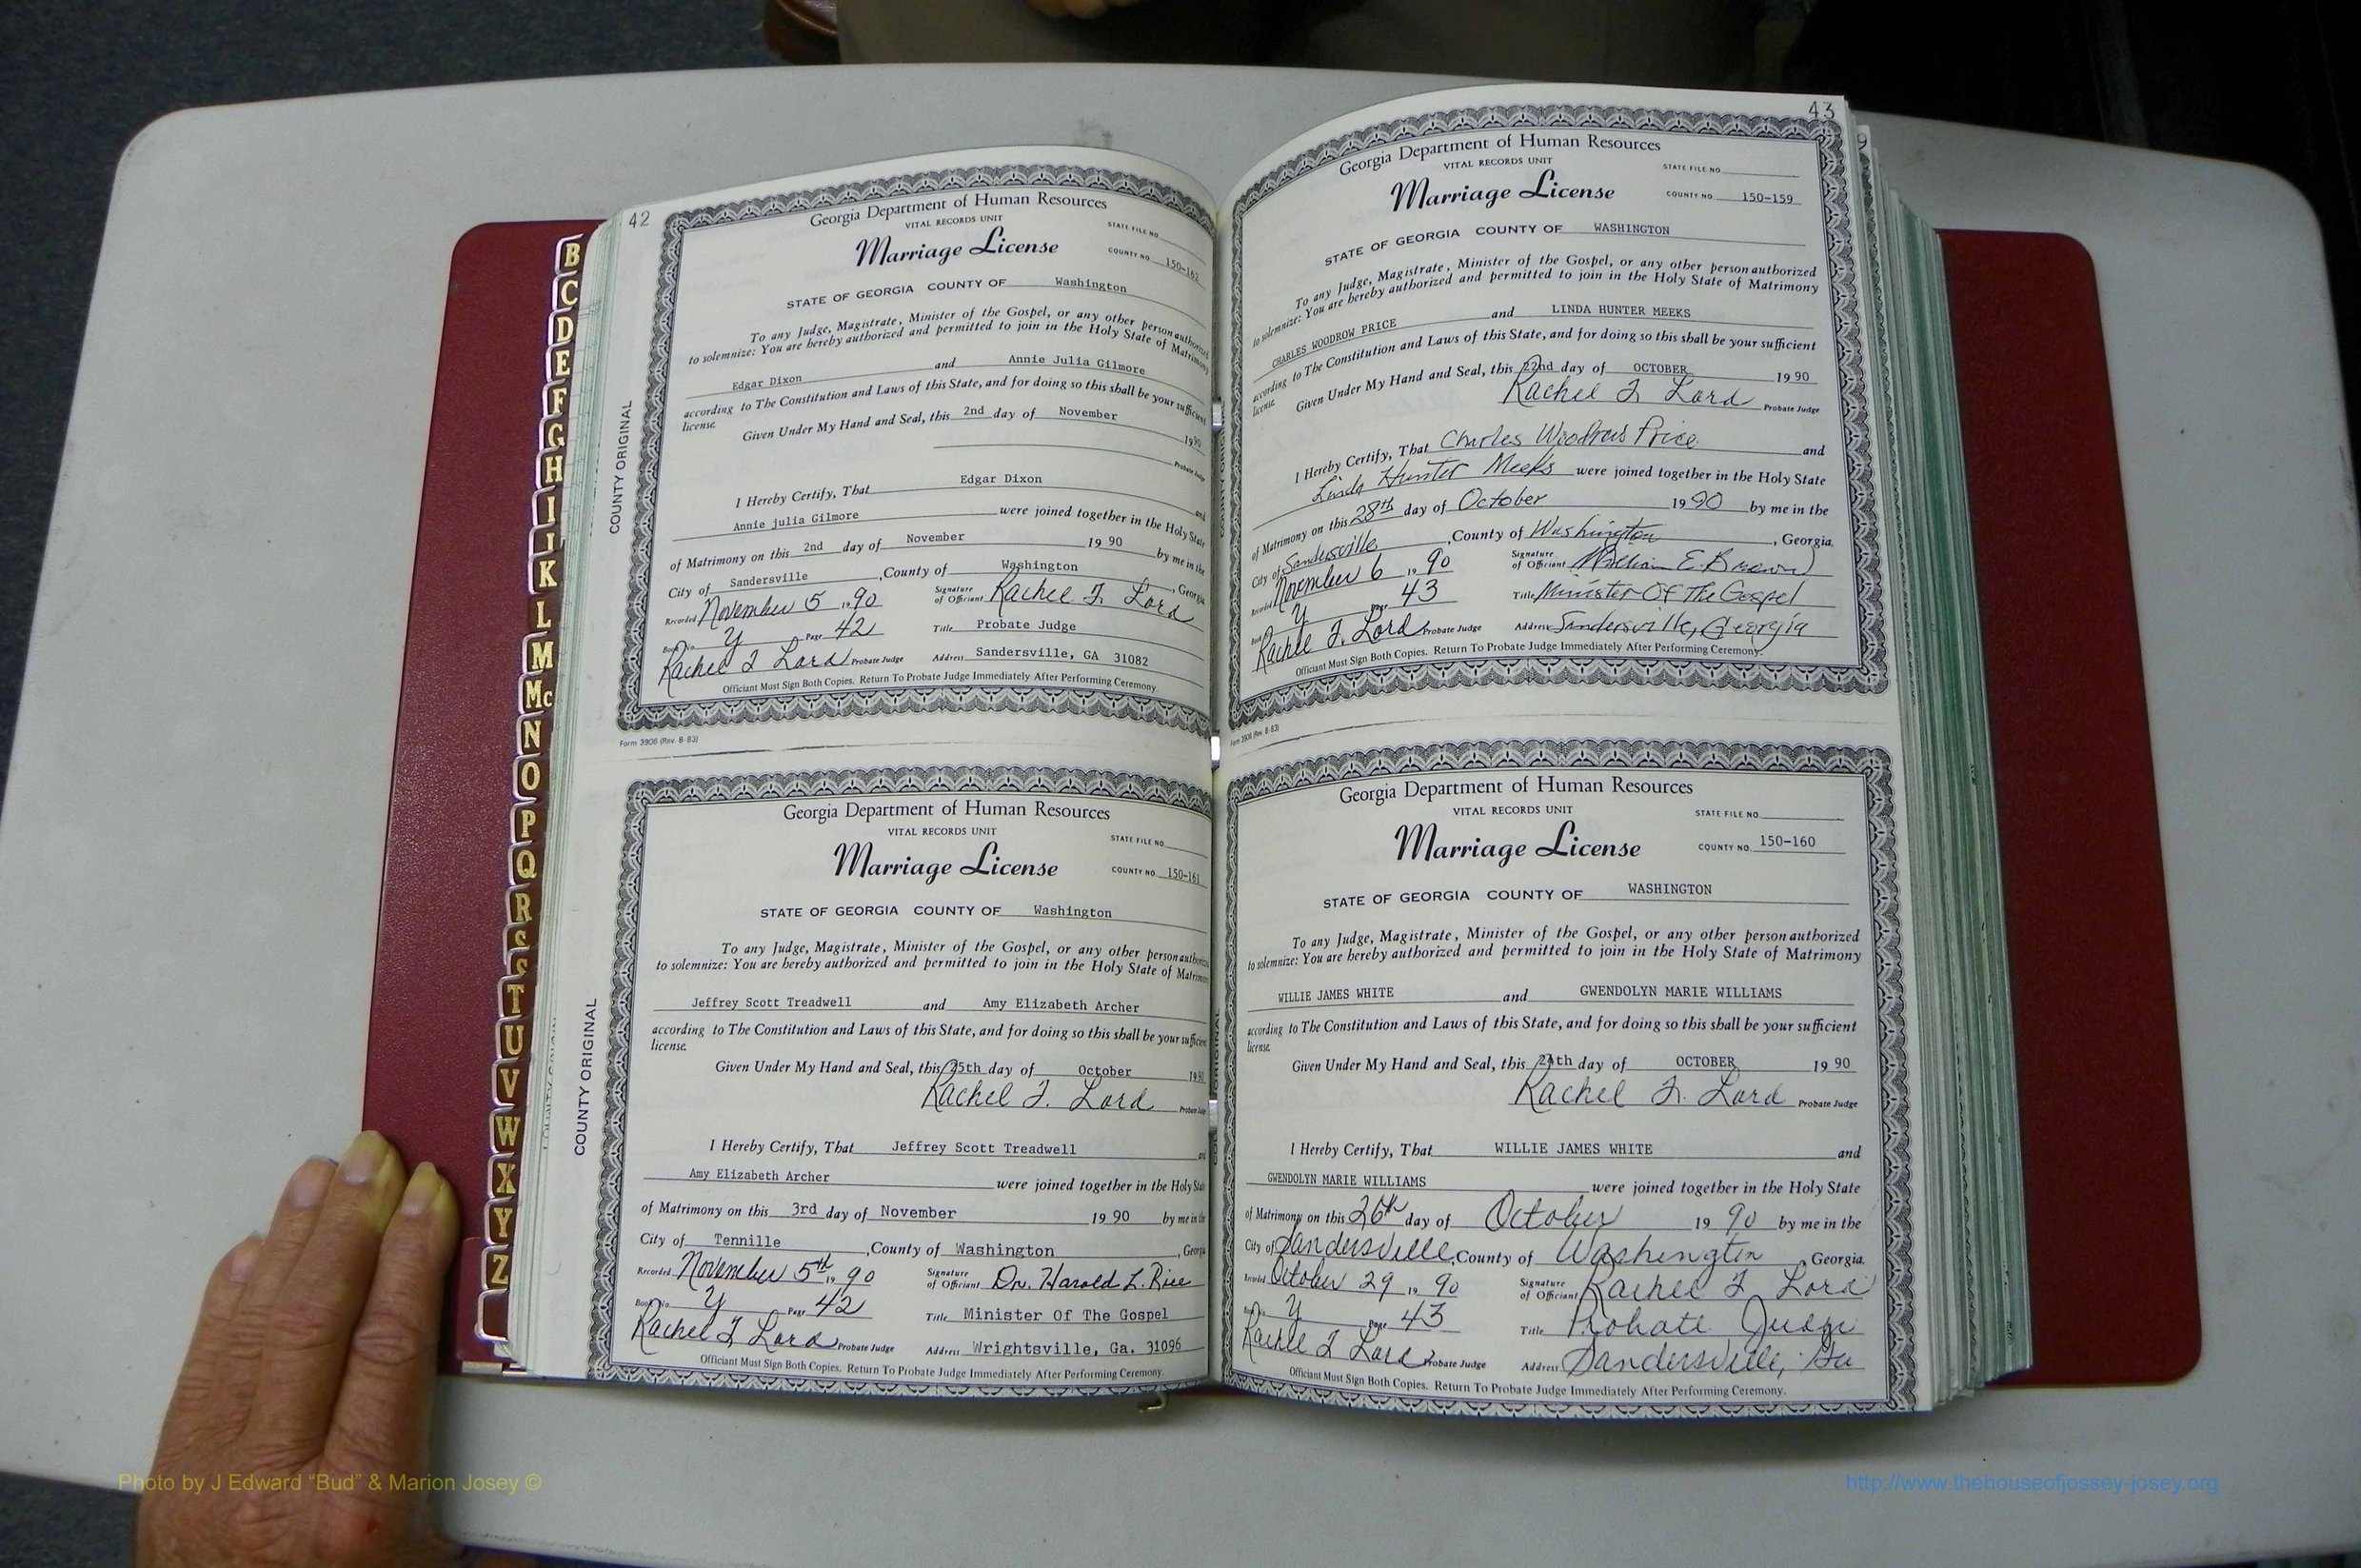 42
Georgia Department of Human Resources
VITAL RECORDS UNIT
STATE FILE NO.
Marriage License
COUNTY NO. 150-162
STATE OF GEORGIA COUNTY OF Washington
To any Judge, Magistrate, Minister of the Gospel, or any other person authorized
to solemnize: You are hereby authorized and permitted to join in the Holy State of Matrimony
Edgar Dixon and Annie Julia Gilmore
according to The Constitution and Laws of this State, and for doing so this shall be your sufficient
license.
Given Under My Hand and Seal, this 2nd day of November 1990
Probate Judge
I Hereby Certify, That Edgar Dixon and
Annie julia Gilmore were joined together in the Holy State
of Matrimony on this 2nd day of November 19 90 by me in the
City of Sandersville, County of Washington, Georgia
Recorded November 5 1990 Signature of Officiant Rachel F. Lord
Book No. Y Page 42 Title Probate Judge
Rachel F Lord Probate Judge Address Sandersville, GA 31082
Officiant Must Sign Both Copies. Return To Probate Judge Immediately After Performing Ceremony.
COUNTY ORIGINAL
Form 3906 (Rev. 8-83)
Georgia Department of Human Resources
VITAL RECORDS UNIT
STATE FILE NO.
Marriage License
COUNTY NO. 150-161
STATE OF GEORGIA COUNTY OF Washington
To any Judge, Magistrate, Minister of the Gospel, or any other person authorized
to solemnize: You are hereby authorized and permitted to join in the Holy State of Matrimony
Jeffrey Scott Treadwell and Amy Elizabeth Archer
according to The Constitution and Laws of this State, and for doing so this shall be your sufficient
license.
Given Under My Hand and Seal, this 25th day of October 1990
Rachel F. Lord Probate Judge
I Hereby Certify, That Jeffrey Scott Treadwell and
Amy Elizabeth Archer were joined together in the Holy State
of Matrimony on this 3rd day of November 19 90 by me in the
City of Tennille, County of Washington, Georgia
Recorded November 5th 1990 Signature of Officiant Dr. Harold L. Rice
Book No. Y Page 42 Title Minister Of The Gospel
Rachel F Lord Probate Judge Address Wrightsville, Ga. 31096
Officiant Must Sign Both Copies. Return To Probate Judge Immediately After Performing Ceremony.
COUNTY ORIGINAL
43
Georgia Department of Human Resources
VITAL RECORDS UNIT
STATE FILE NO.
Marriage License
COUNTY NO. 150-159
STATE OF GEORGIA COUNTY OF WASHINGTON
To any Judge, Magistrate, Minister of the Gospel, or any other person authorized
to solemnize: You are hereby authorized and permitted to join in the Holy State of Matrimony
CHARLES WOODROW PRICE and LINDA HUNTER MEEKS
according to The Constitution and Laws of this State, and for doing so this shall be your sufficient
license.
Given Under My Hand and Seal, this 22nd day of OCTOBER 19 90
Rachel F. Lord Probate Judge
I Hereby Certify, That Charles Woodrow Price and
Linda Hunter Meeks were joined together in the Holy State
of Matrimony on this 28th day of October 19 90 by me in the
City of Sandersville, County of Washington, Georgia.
Recorded November 6 1990 Signature of Officiant William E. Brown
Book No. Y Page 43 Title Minister Of The Gospel
Rachel F. Lord Probate Judge Address Sandersville, Georgia
Officiant Must Sign Both Copies. Return To Probate Judge Immediately After Performing Ceremony.
Form 3906 (Rev. 8-83)
Georgia Department of Human Resources
VITAL RECORDS UNIT
STATE FILE NO.
Marriage License
COUNTY NO. 150-160
STATE OF GEORGIA COUNTY OF WASHINGTON
To any Judge, Magistrate, Minister of the Gospel, or any other person authorized
to solemnize: You are hereby authorized and permitted to join in the Holy State of Matrimony
WILLIE JAMES WHITE and GWENDOLYN MARIE WILLIAMS
according to The Constitution and Laws of this State, and for doing so this shall be your sufficient
license.
Given Under My Hand and Seal, this 24th day of OCTOBER 19 90
Rachel F. Lord Probate Judge
I Hereby Certify, That WILLIE JAMES WHITE and
GWENDOLYN MARIE WILLIAMS were joined together in the Holy State
of Matrimony on this 26th day of October 19 90 by me in the
City of Sandersville, County of Washington, Georgia.
Recorded October 29 1990 Signature of Officiant Rachel F Lord
Book No. Y Page 43 Title Probate Judge
Rachel F Lord Probate Judge Address Sandersville, Ga
Officiant Must Sign Both Copies. Return To Probate Judge Immediately After Performing Ceremony.
B
C
D
E
F
G
H
I
J
K
L
M
Mc
N
O
P
Q
R
S
S
T
U
V
W
X
Y
Z
Photo by J Edward “Bud” & Marion Josey ©
http://www.thehouseofjossey-josey.org